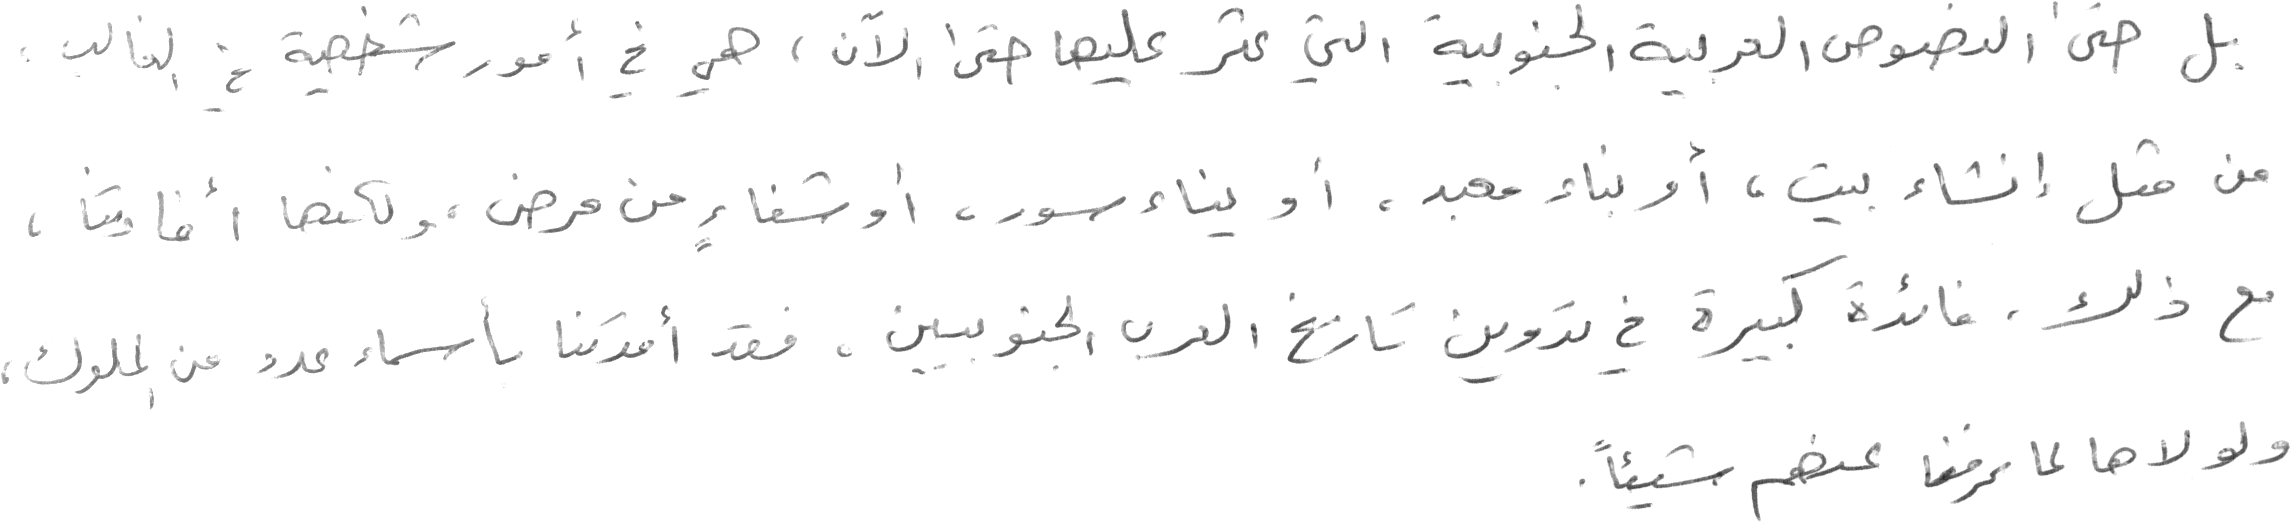 بل حتى النصوص العربية الجنوبية التي عثر عليها حتى الآن، هي في أمور شخصية في الغالب،
من مثل إنشاء بيت، أو بناء معبد، أو بناء سور، أو شفاءٍ من مرض، ولكنها أفادتنا،
مع ذلك، فائدة كبيرة في تدوين تاريخ العرب الجنوبيين، فقد أمدتنا بأسماء عدد من الملوك،
ولولاها لما عرفنا عنهم شيئاً.